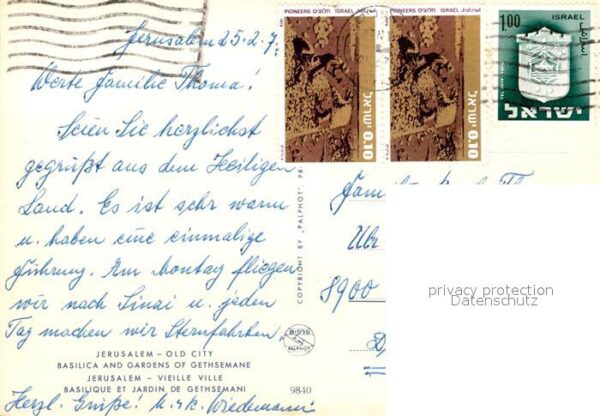 Jerusalem 25.2.7
Werte Familie Thoma!
Seien Sie herzlichst
gegrüßt aus dem Heiligen
Land. Es ist sehr warm
u. haben eine einmalige
Führung. Am Montag fliegen
wir nach Sinai u. jeden
Tag machen wir Sternfahrten.
JERUSALEM – OLD CITY
BASILICA AND GARDENS OF GETHSEMANE
JERUSALEM – VIEILLE VILLE
BASILIQUE ET JARDIN DE GETHSEMANI
9840
Herzl. Grüße! M. u. K. Wiedemann
COPYRIGHT BY "PALPHOT"
PIONEERS ISRAEL חלוצים
ישראל 0.10
PIONEERS ISRAEL חלוצים
ישראל 0.10
1.00 ISRAEL
ישראל
8900
privacy protection
Datenschutz